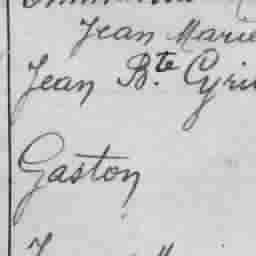 Jean Marie
Jean Bte Cyri
Gaston